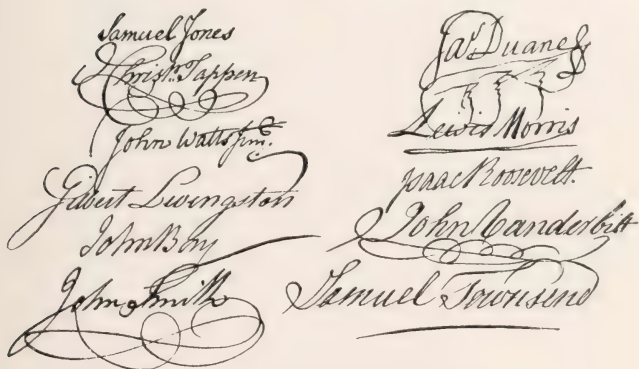 Samuel Jones
Christr. Tappen
John Watts Junr.
Gilbert Livingston
John Bay
John Smith
Jas. Duane
Lewis Morris
Isaac Roosevelt.
John Vanderbilt
Samuel Townsend